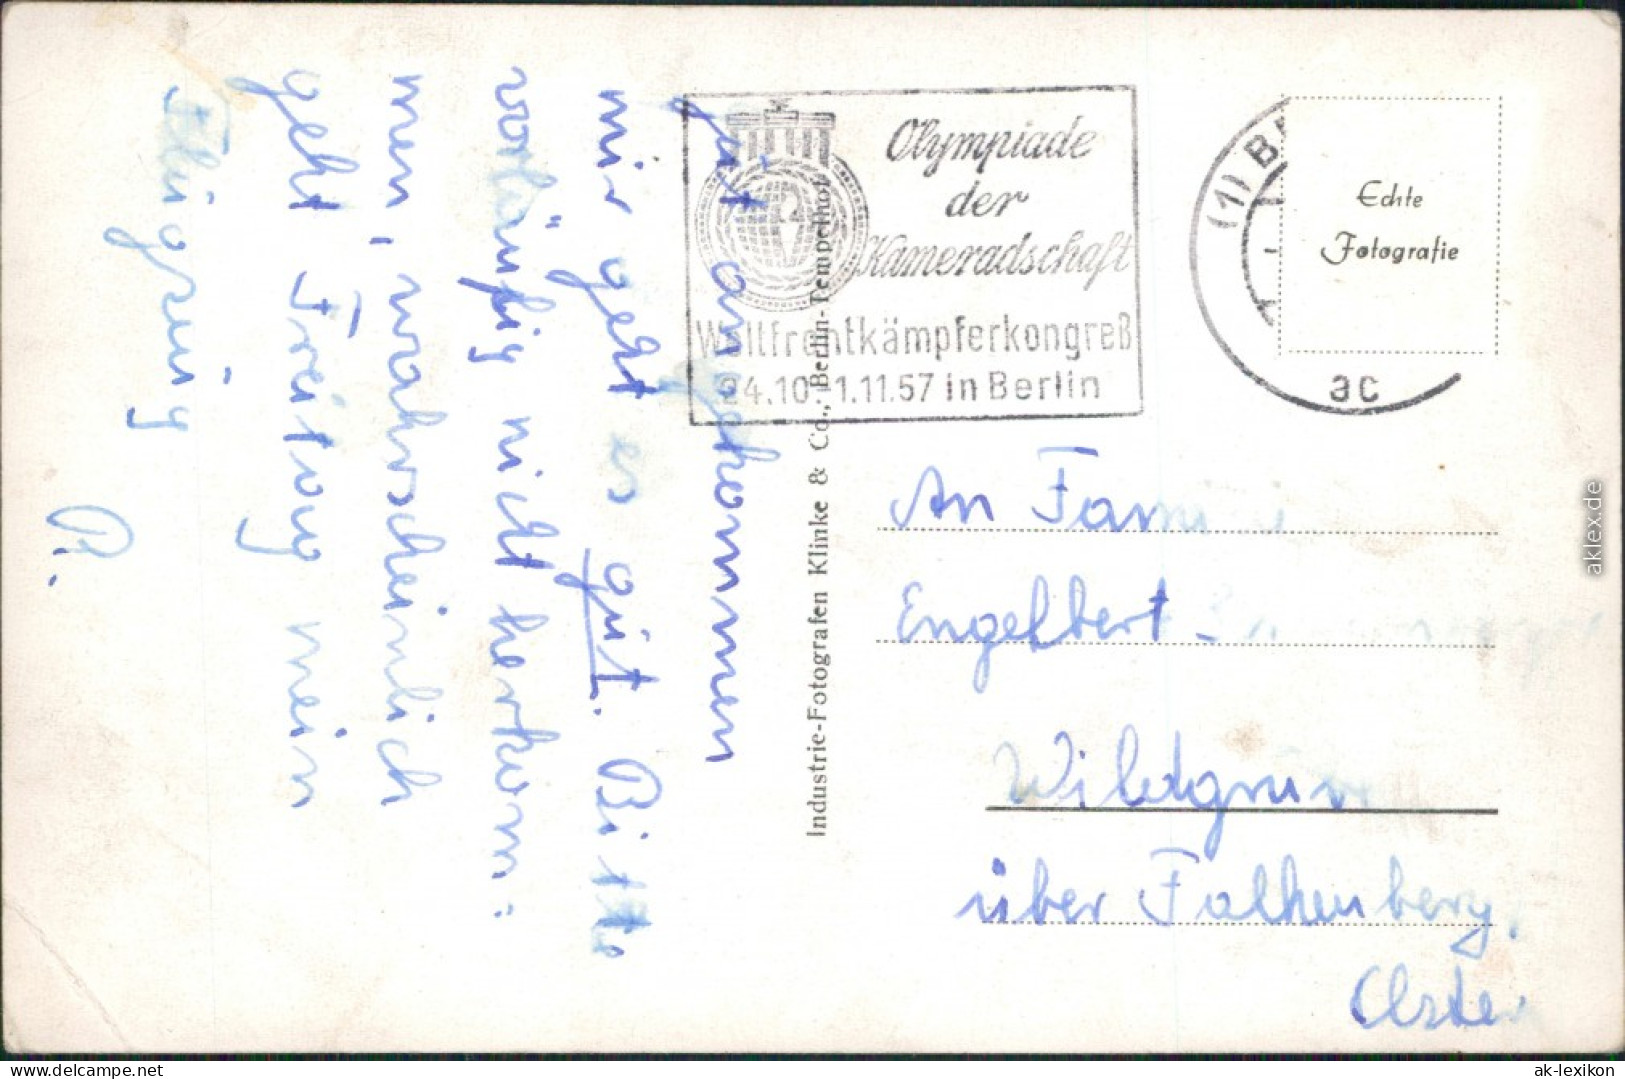 gut angekommen
mir geht es gut. Bitte
vorläufig nicht herkom:
men, wahrscheinlich
geht Freitag mein
Flugzeug
R.
Olympiade
der
Kameradschaft
Weltfrontkämpferkongreß
24.10.-1.11.57 in Berlin
(1) B
ac
Echte
Fotografie
Industrie-Fotografen Klinke & Co., Berlin-Tempelhof
An Fam
Engelbert
über Falkenberg,
Elster
aklex.de
www.delcampe.net
ak-lexikon